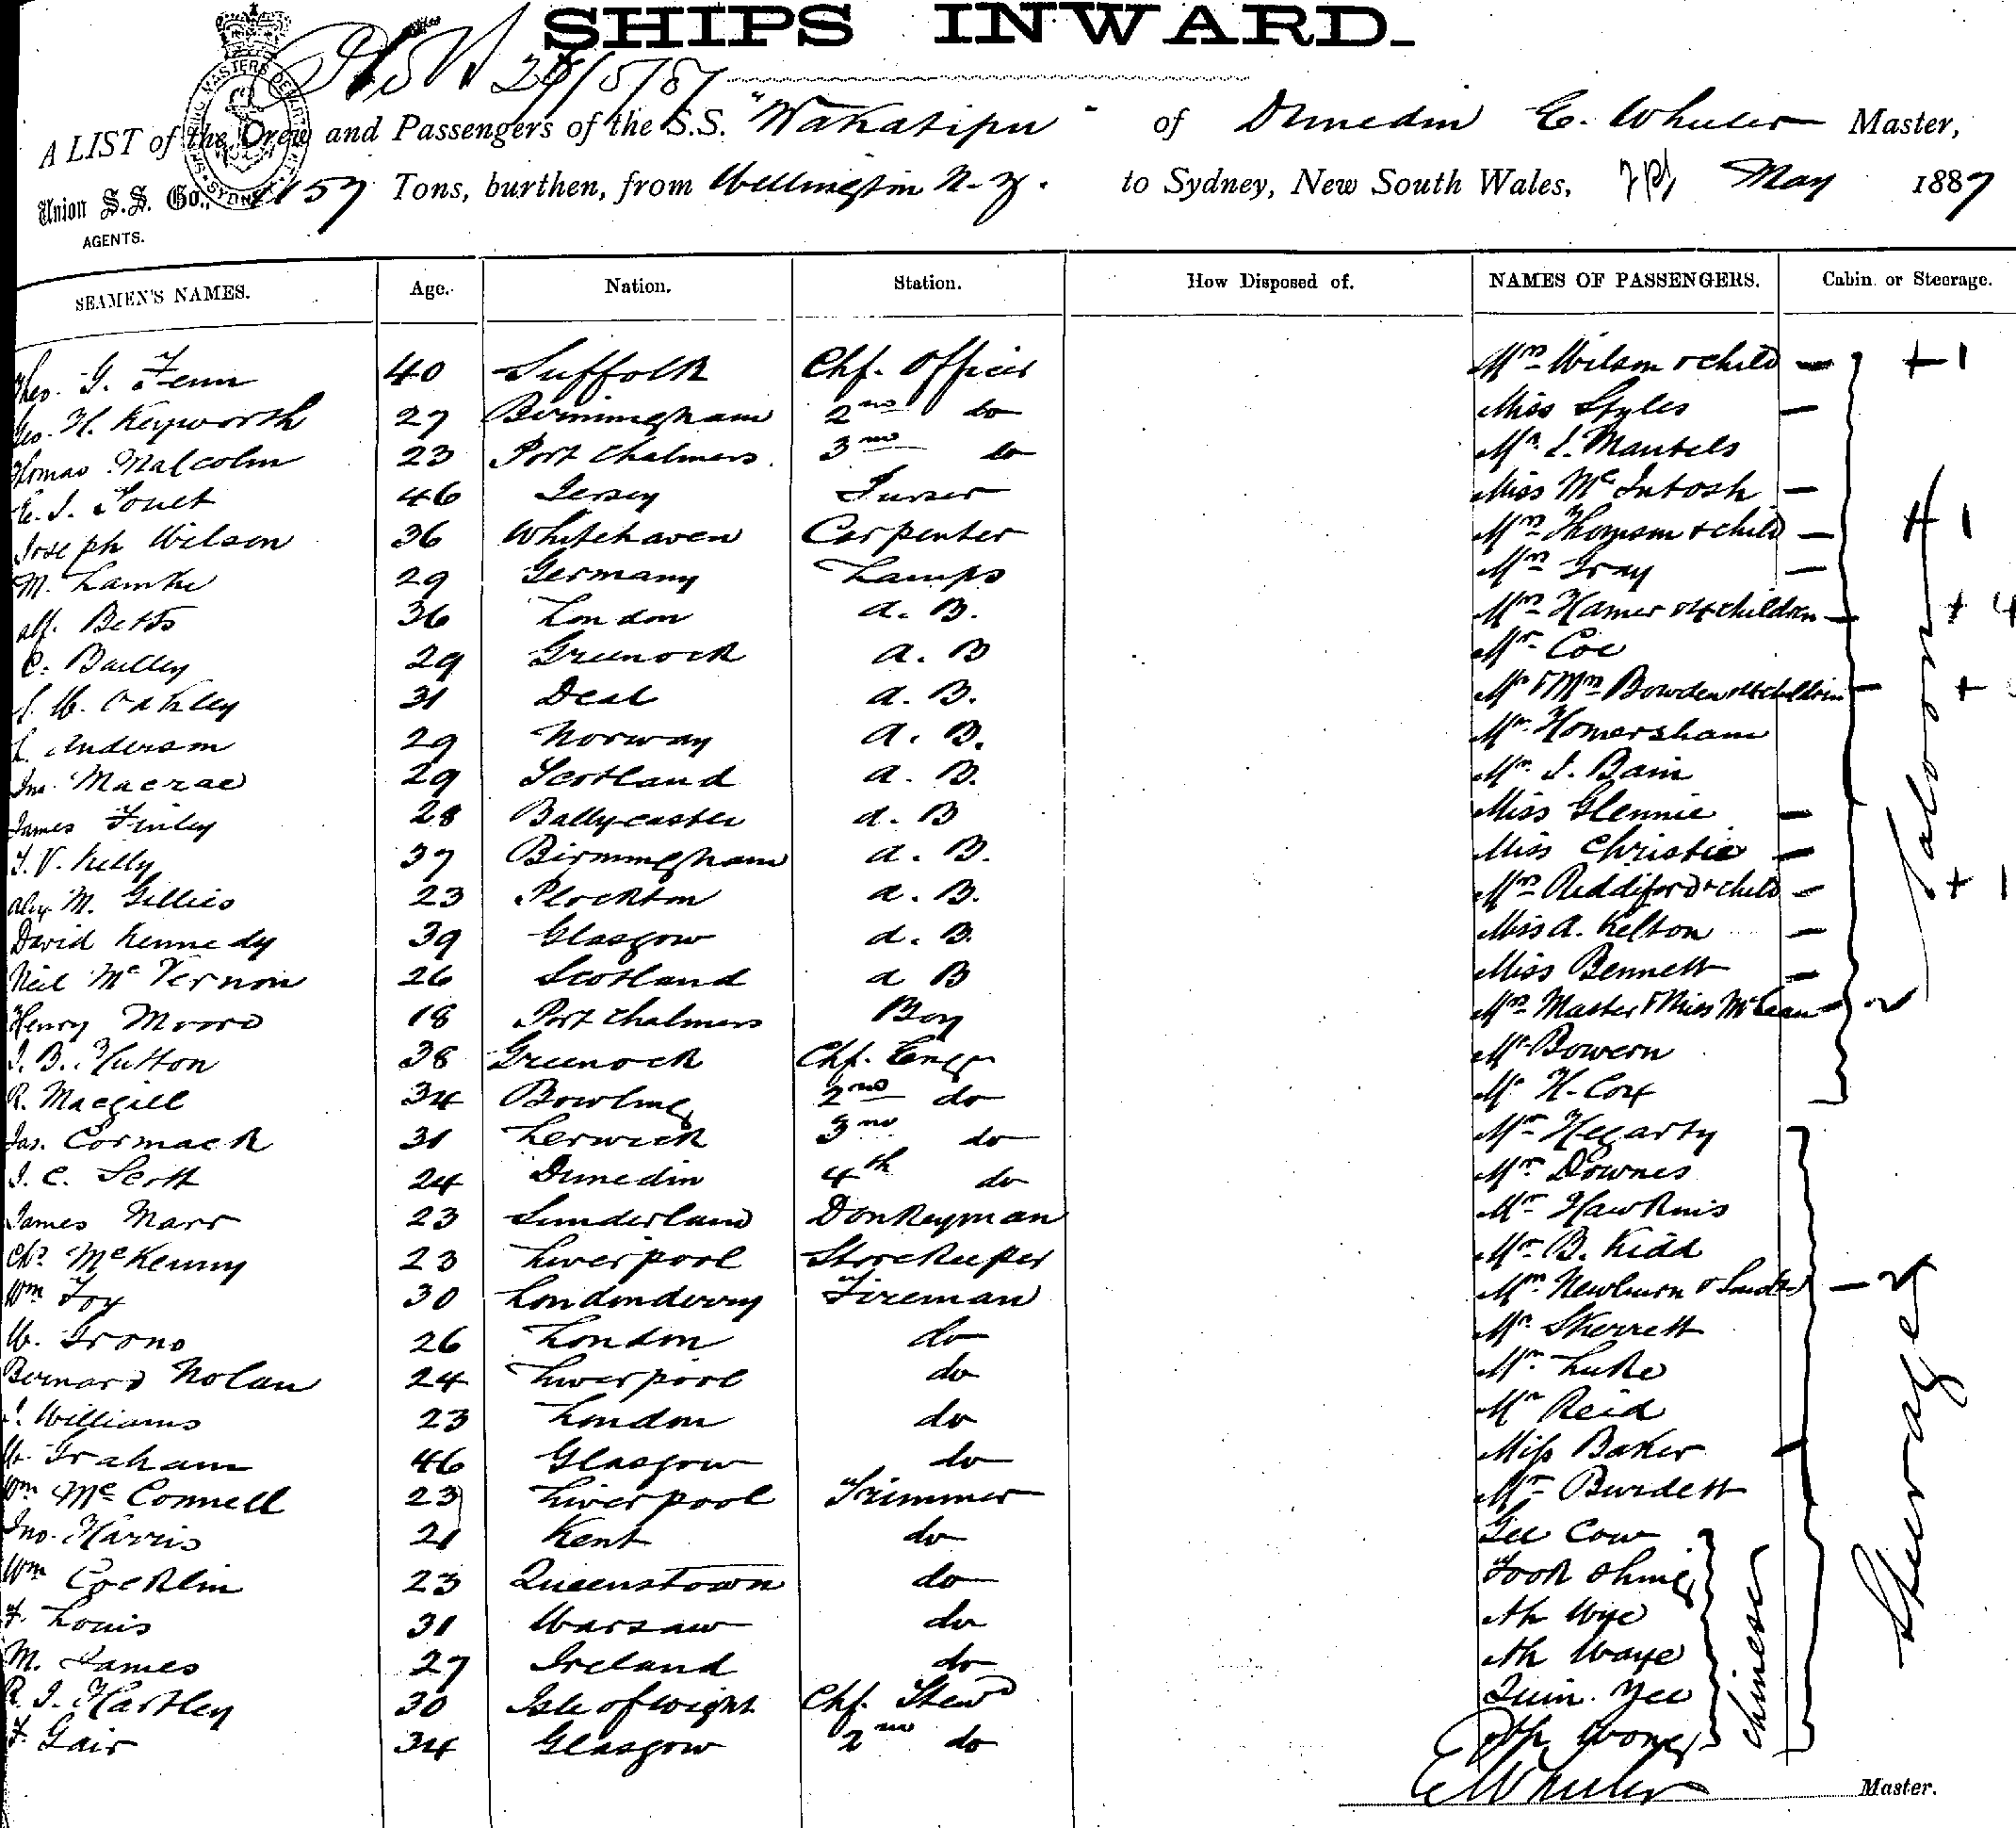 SHIPS INWARD.
A LIST of the Crew and Passengers of the S.S. "Wakatipu" of Dunedin E. Wheeler Master,
Union S.S. Co., 1157 Tons, burthen, from Wellington N.Z. to Sydney, New South Wales, May 1887
AGENTS.
SEAMEN'S NAMES. Age. Nation. Station. How Disposed of. NAMES OF PASSENGERS. Cabin or Steerage.
Theo. G. Fenn 40 Suffolk Chf. Officer Mrs Wilson & child — + 1
Geo. H. Keyworth 27 Birmingham 2nd do Miss Styles —
Thomas Malcolm 23 Port Chalmers 3rd do Mr. Mantels
E. J. 46 Jersey Purser Miss McIntosh —
Joseph Wilson 36 Whitehaven Carpenter Mrs Thomson & child — + 1
M. 29 Germany Lamps Mrs —
Alf. Betts 36 London A. B. Mrs Hamer & 4 children — + 4
C. 29 Greenock A. B Mr Coe
Oakley 31 Deal A. B. Mr & Mrs Bowden & 4 children — +
Anderson 29 Norway A. B. Mr Homersham
Jno. Macrae 29 Scotland A. B. Mr J. Bain
James Finley 28 Ballycastle A. B Miss Glennie —
Kelly 37 Birmingham A. B. Miss Christie —
Alex M. Gillies 23 Plockton A. B. Mrs Riddiford & child — + 1
David Kennedy 39 Glasgow A. B. Miss A. Kelton —
Neil McVernon 26 Scotland A B Miss Bennett —
Henry Moore 18 Port Chalmers Boy Mrs Master & Miss McLean — 2
J. B. Hutton 38 Greenock Chf. Engr Mr Bowern
R. Macgill 34 Bowling 2nd do Mr H. Cox
Saloon
Jas. Cormack 31 Lerwick 3rd do Mr Hegarty
J. C. Scott 24 Dunedin 4th do Mr Downes
James Marr 23 Sunderland Donkeyman Mr Hawkins
Chs McKenny 23 Liverpool Storekeeper Mr B. Kidd
Wm Foy 30 Londonderry Fireman Mrs Newburn & — 2
W. 26 London do Mr Skerrett
Bernard Nolan 24 Liverpool do Mr Luke
Williams 23 London do Mr Reid
Graham 46 Glasgow do Miss Baker —
Wm McConnell 23 Liverpool Trimmer Mr Burdett
Jno. Harris 21 Kent do Gee Cow
Wm Cocklin 23 Queenstown do Fook
F. Louis 31 Warsaw do Ah Wye
M. James 27 Ireland do Ah Waye
R. J. Hartley 30 Isle of Wight Chf. Stewd Quin Yee
F. Gair 34 Glasgow 2nd do Wong
Chinese
Steerage
E Wheeler Master.